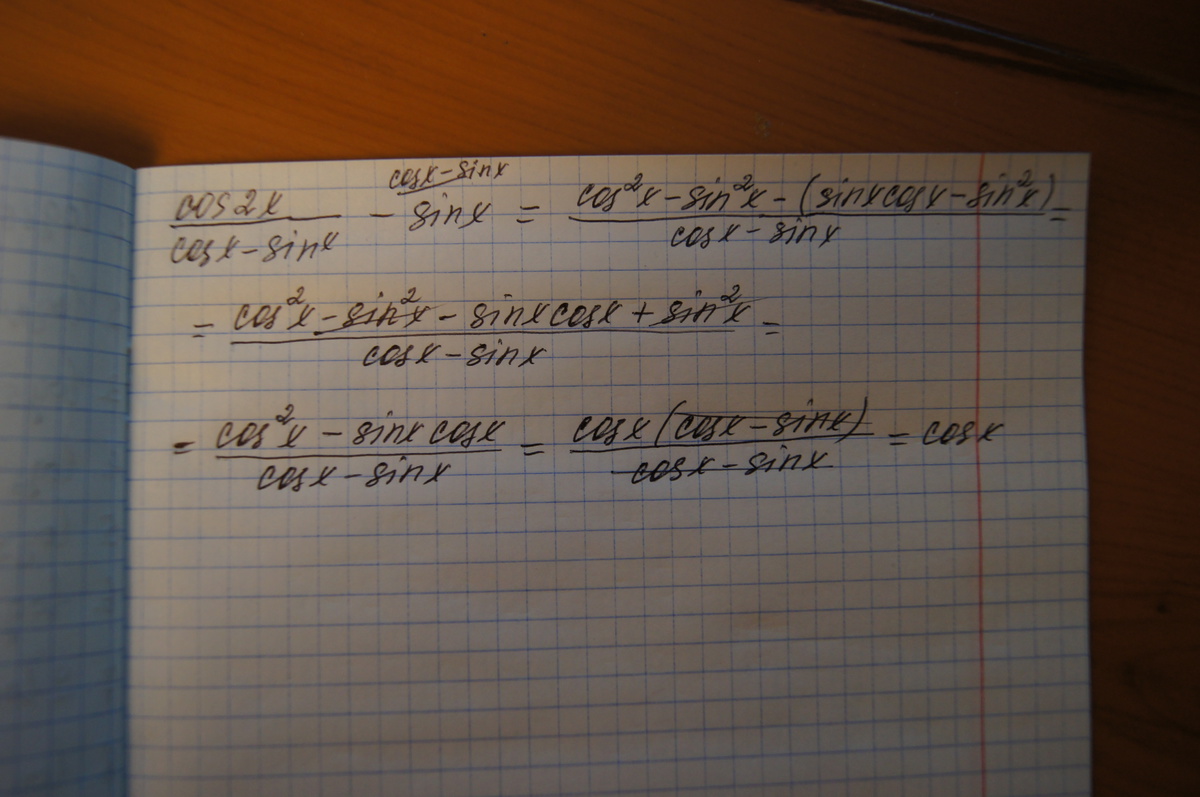 cos2x / (cosx - sinx) - sinx^(cosx-sinx) = (cos²x - sin²x - (sinxcosx - sin²x)) / (cosx - sinx) =
= (cos²x - sin²x - sinxcosx + sin²x) / (cosx - sinx) =
= (cos²x - sinxcosx) / (cosx - sinx) = cosx(cosx - sinx) / (cosx - sinx) = cosx